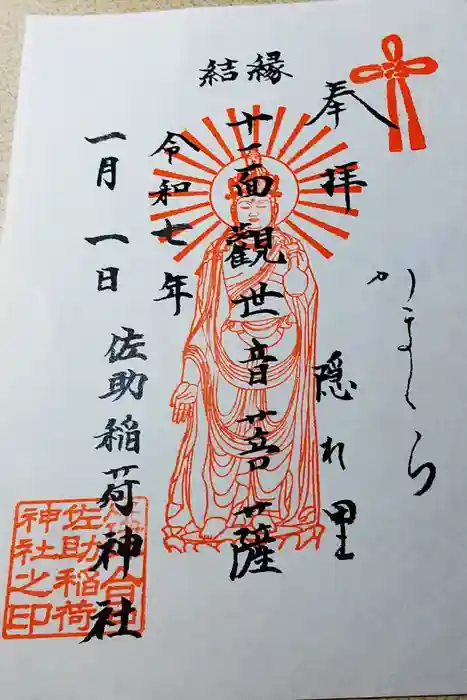 縁結
かまくら
奉拝 隠れ里
十一面觀世音菩薩
令和七年
一月一日
佐助稲荷神社
佐助稲荷
神社之印